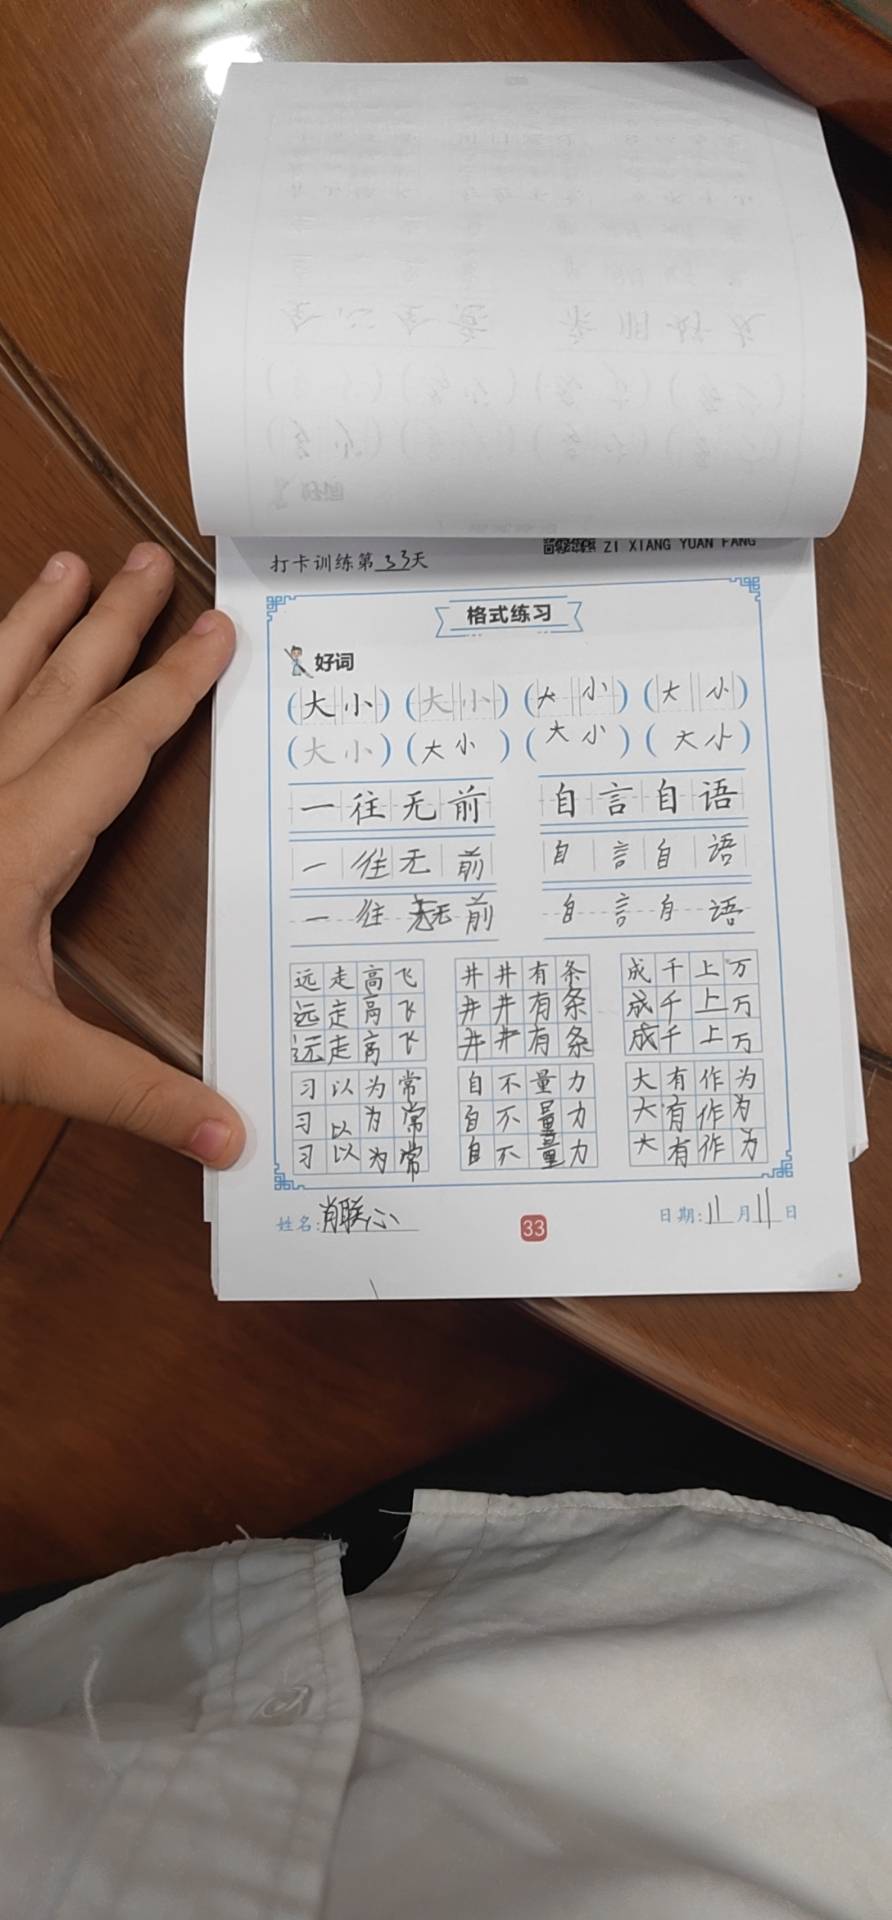 ZI XIANG YUAN FANG
打卡训练第33天
格式练习
好词
(大小)(大小)(大小)(大小)
(大小)(大小)(大小)(大小)
一往无前 自言自语
一往无前 自言自语
一往无前 自言自语
远走高飞 井井有条 成千上万
远走高飞 井井有条 成千上万
远走高飞 井井有条 成千上万
习以为常 自不量力 大有作为
习以为常 自不量力 大有作为
习以为常 自不量力 大有作为
姓名:肖联心 33 日期:11月11日